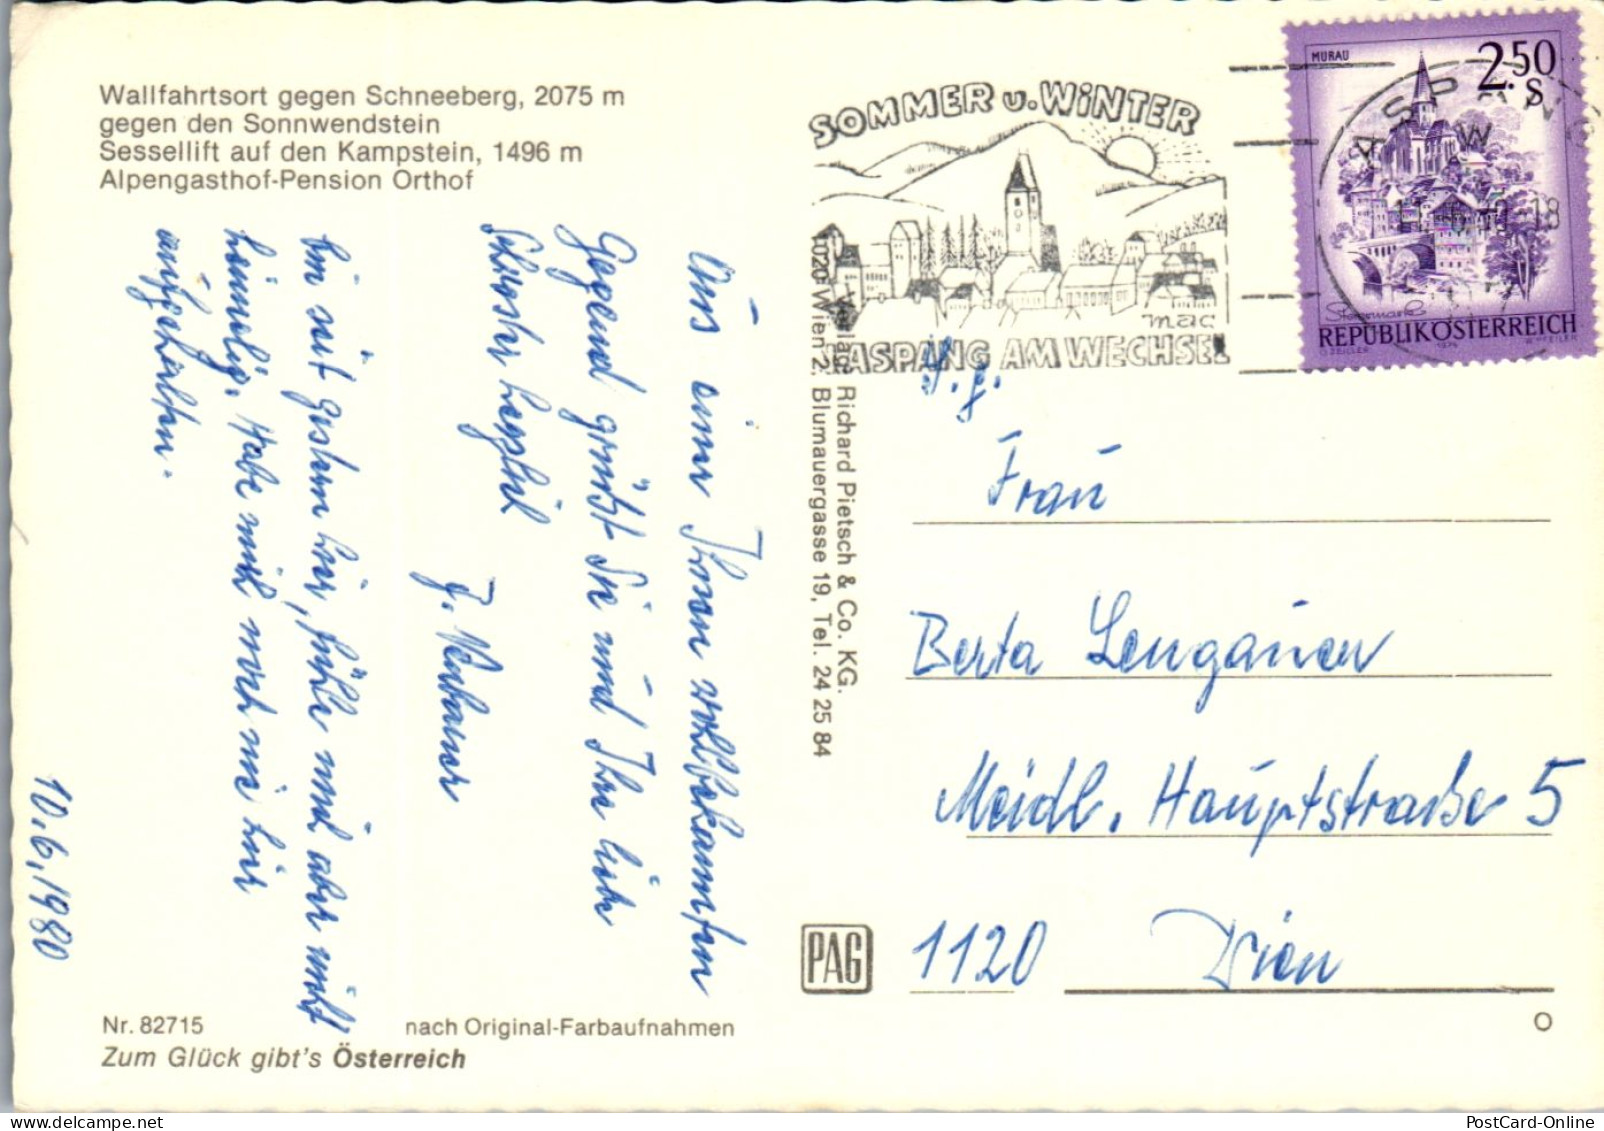 Wallfahrtsort gegen Schneeberg, 2075 m
gegen den Sonnwendstein
Sessellift auf den Kampstein, 1496 m
Alpengasthof-Pension Orthof
Aus einer Ihnen wohlbekannten
Gegend grüßt Sie und Ihre liebe
Schwester herzlich
Bin seit gestern hier, fühle mich aber nicht
heimelig. Habe mich noch nie hier
aufgehalten.
10.6.1980
Nr. 82715
nach Original-Farbaufnahmen
Zum Glück gibt's Österreich
Verlag: Richard Pietsch & Co. KG.
1020 Wien 2, Blumauergasse 19, Tel. 24 25 84
PAG
SOMMER u. WINTER
mac
ASPANG AM WECHSEL
MURAU
2.50
S
Steiermark
REPUBLIK ÖSTERREICH
O. ZEILER
1974
W. PFEILER
Frau
Berta Lengauer
Meidl. Hauptstraße 5
1120 Wien
O
PostCard-Online